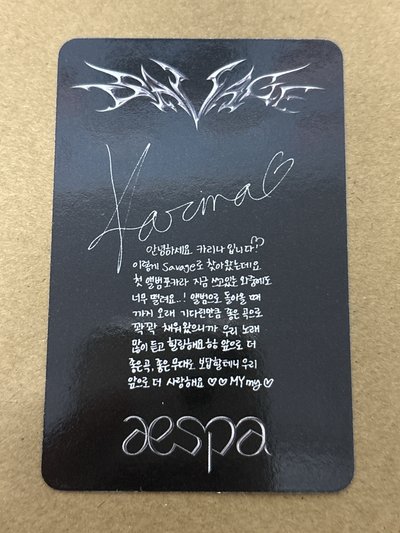 SAVAGE
Karina
안녕하세요 카리나 입니다!♡
이렇게 Savage로 찾아왔는데요
첫 앨범포카라 지금 쓰고있는 와중에도
너무 떨려요..! 앨범으로 돌아올 때
까지 오래 기다린만큼 좋은 곡으로
꽉꽉 채워왔으니까 우리 노래
많이 듣고 힐링해요 앞으로 더
좋은곡, 좋은 무대로 보답할테니 우리
앞으로 더 사랑해요 ♡♡ MY my ♡
aespa